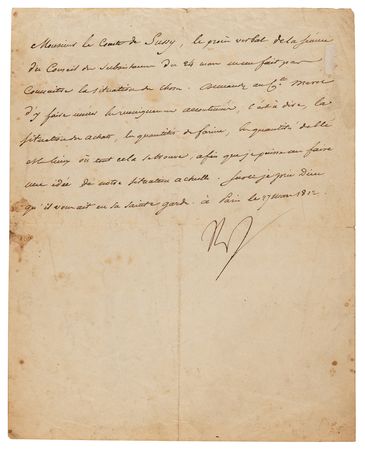 Monsieur le Comte de Sussy, le procès verbal de la séance
du Conseil des subsistances du 24 mars ne me fait pas
connaître la situation des choses. Demandez au Cte Maret
d'y faire mettre les renseignemens accoutumés, c'est à dire, la
situation des achats, les quantités de farine, les quantités de blé
et les lieux où tout cela se trouve, afin que je puisse me faire
une idée de notre situation actuelle. Sur ce je prie Dieu
qu'il vous ait en sa sainte garde. à Paris le 27 mars 1812